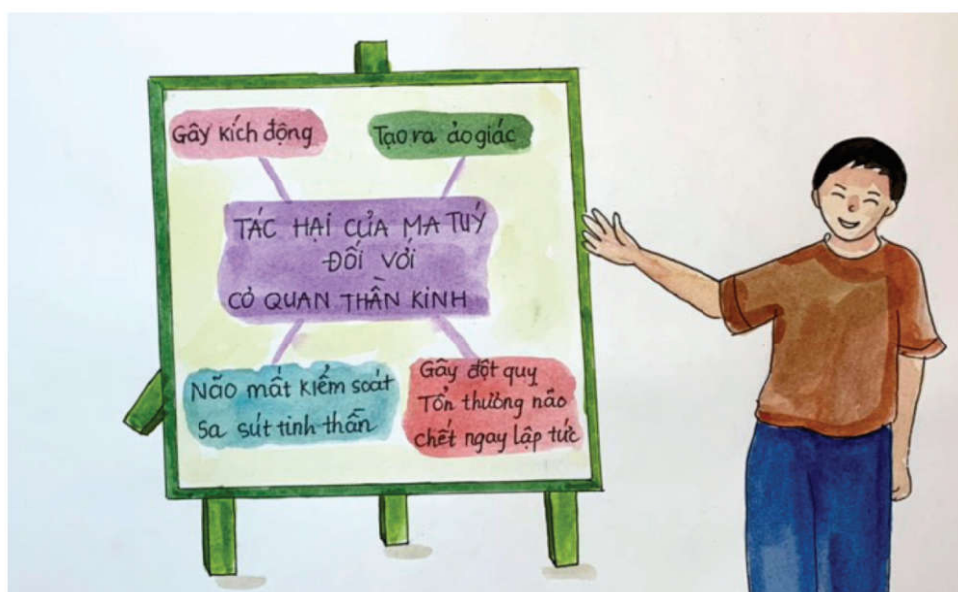 Gây kích động
Tạo ra ảo giác
TÁC HẠI CỦA MA TUÝ
ĐỐI VỚI
CƠ QUAN THẦN KINH
Não mất kiểm soát
Sa sút tinh thần
Gây đột quỵ
Tổn thương não
chết ngay lập tức